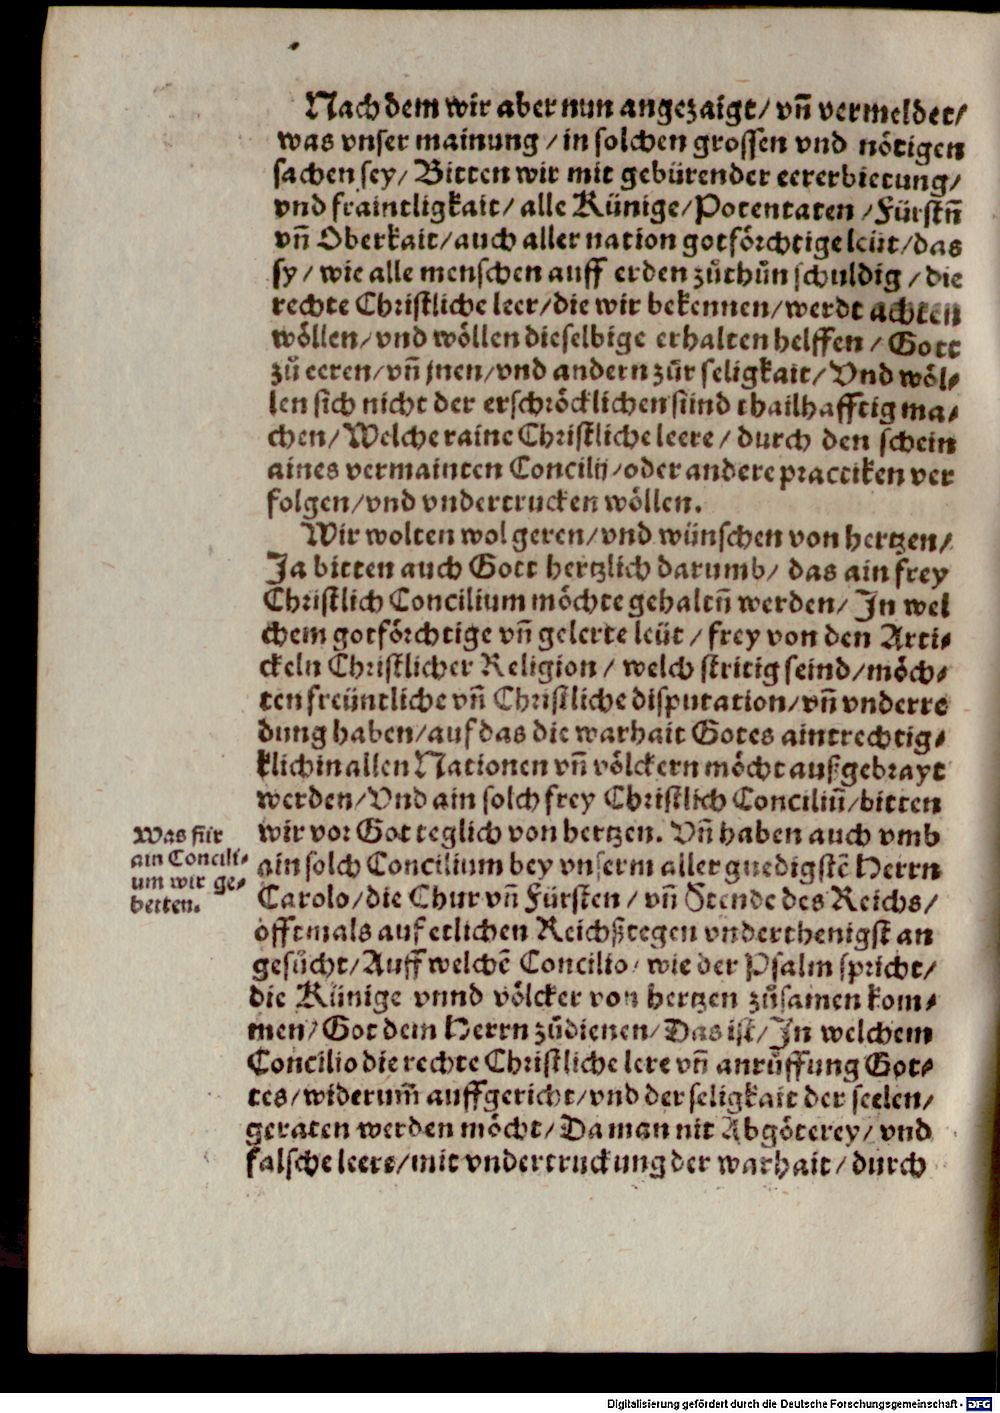 Nach dem wir aber nun angezaigt/ vñ vermeldet/
was vnser mainung /in solchen grossen vnd nötigen
sachen sey/ Bitten wir mit gebürender eererbietung/
vnd fraintligkait/ alle Künige/Potentaten /Fürstñ
vñ Oberkait/auch aller nation gotförchtige leüt/das
sy/ wie alle menschen auff erden zůthůn schuldig /die
rechte Christliche leer/die wir bekennen/werdt achten
wöllen/vnd wöllen dieselbige erhalten helffen /Gott
zů eeren/vñ jnen/vnd andern zůr seligkait/Vnd wöl-
len sich nicht der erschröcklichen sünd thailhafftig ma-
chen/Welche raine Christliche leere/durch den schein
aines vermainten Concilij/oder andere practiken ver
folgen/vnd vndertrucken wöllen.
Wir wolten wol geren/vnd wünschen von hertzen/
Ja bitten auch Gott hertzlich darumb/ das ain frey
Christlich Concilium möchte gehaltñ werden/ In wel
chem gotförchtige vñ gelerte leüt /frey von den Arti-
ckeln Christlicher Religion/ welch stritig seind/möch-
ten freüntliche vñ Christliche disputation/vñ vnderre
dung haben/auf das die warhait Gotes aintrechtig-
klich in allen Nationen vñ völckern möcht außgebrayt
werden/Vnd ain solch frey Christlich Conciliũ/bitten
wir vor Got teglich von hertzen. Vñ haben auch vmb
ain solch Concilium bey vnserm aller gnedigstẽ Herrn
Carolo/die Chur vñ Fürsten/ vñ Stende des Reichs/
offtmals auf etlichen Reichßtegen vnderthenigst an
gesůcht/Auff welchẽ Concilio/ wie der Psalm spricht/
die Künige vnnd völcker von hertzen zůsamen kom-
men/Got dem Herrn zůdienen/Das ist/In welchem
Concilio die rechte Christliche lere vñ anrůffung Got-
tes/widerum̃ auffgericht/vnd der seligkait der seelen/
geraten werden möcht/Da man nit Abgöterey/ vnd
falsche leere/mit vndertruckung der warhait/durch
Was für
ain Concili-
um wir ge-
betten.
Digitalisierung gefördert durch die Deutsche Forschungsgemeinschaft - DFG